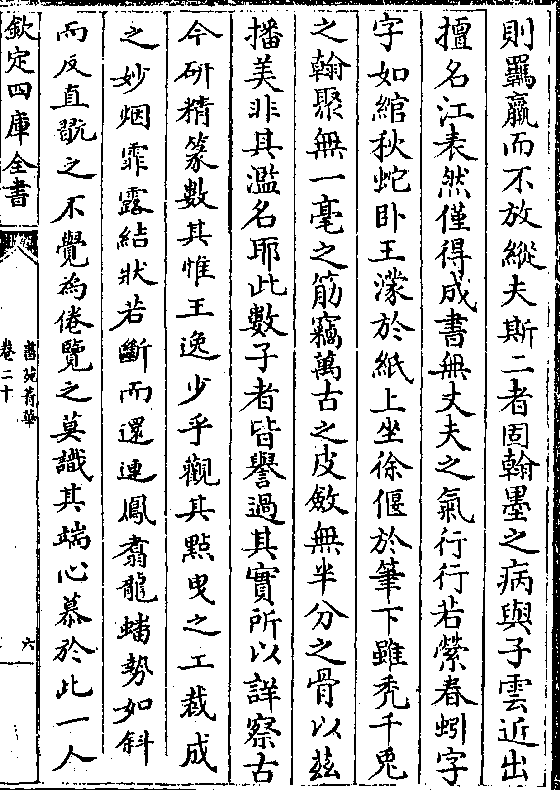 則羈羸而不放縱夫斯二者固翰墨之病與子雲近出
擅名江表然僅得成書無丈夫之氣行行若縈春蚓字
字如綰秋蛇卧王濛於紙上坐徐偃於筆下雖禿千兎
之翰聚無一毫之筋竊萬古之皮斂無半分之骨以茲
播美非其濫名耶此數子者皆譽過其實所以詳察古
今研精篆數其惟王逸少乎觀其點曳之工裁成
之妙烟霏露結狀若斷而還連鳳翥龍蟠勢如斜
而反直翫之不覺為倦覽之莫識其端心慕於此一人
欽定四庫全書
書苑菁華
卷二十
六